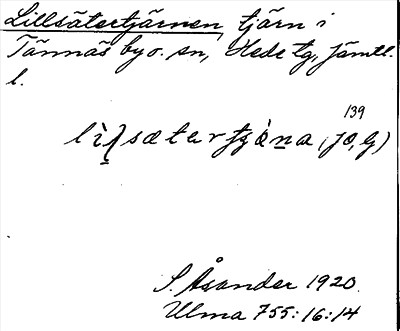 Lillsätertjärnen, tjärn i
Tännäs by o. sn, Hede tg, Jämtl.
l.
139
S. Åsander 1920.
Ulma 755:16:14